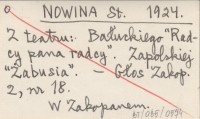 a NOWINA St. 1924.
Z teatru: Bałuckiego "Rad-
cy pana radcy". Zapolskiej
"Żabusia". – Głos Zakop.
2, nr 18.
W Zakopanem.